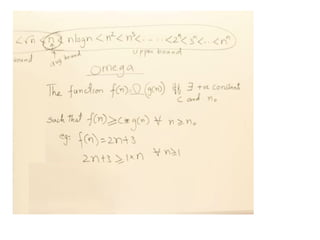 < √n < n < nlogn < n² < n³ < ---- < 2ⁿ < 3ⁿ < .. < nⁿ
ound avg bound upper bound
Omega
The function f(n)=Ω(g(n)) iff ∃ +ve constants
c and n₀
such that f(n) ≥ c*g(n) ∀ n ≥ n₀
eg: f(n) = 2n+3
2n+3 ≥ 1×n ∀ n≥1